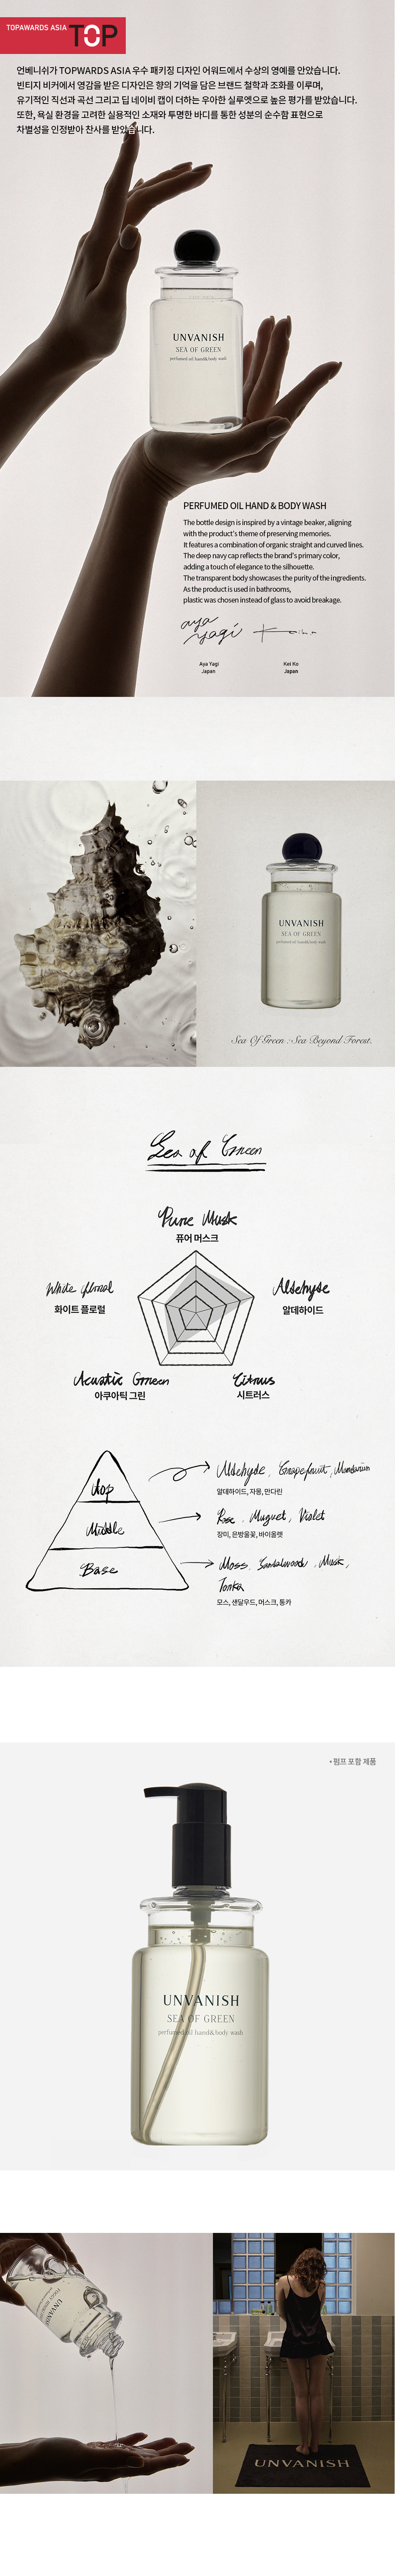 TOPAWARDS ASIA TOP
언베니쉬가 TOPWARDS ASIA 우수 패키징 디자인 어워드에서 수상의 영예를 안았습니다.
빈티지 비커에서 영감을 받은 디자인은 향의 기억을 담은 브랜드 철학과 조화를 이루며,
유기적인 직선과 곡선 그리고 딥 네이비 캡이 더하는 우아한 실루엣으로 높은 평가를 받았습니다.
또한, 욕실 환경을 고려한 실용적인 소재와 투명한 바디를 통한 성분의 순수함 표현으로
차별성을 인정받아 찬사를 받았습니다.
UNVANISH
SEA OF GREEN
perfumed oil hand&body wash
PERFUMED OIL HAND & BODY WASH
The bottle design is inspired by a vintage beaker, aligning
with the product's theme of preserving memories.
It features a combination of organic straight and curved lines.
The deep navy cap reflects the brand's primary color,
adding a touch of elegance to the silhouette.
The transparent body showcases the purity of the ingredients.
As the product is used in bathrooms,
plastic was chosen instead of glass to avoid breakage.
aya
yagi
Aya Yagi
Japan
Kei Ko
Japan
UNVANISH
SEA OF GREEN
perfumed oil hand&body wash
Sea Of Green : Sea Beyond Forest.
Sea of Green
Pure Musk
퓨어 머스크
White floral
화이트 플로럴
Aldehyde
알데하이드
Acuatic Green
아쿠아틱 그린
Citrus
시트러스
Top
Aldehyde, Grapefruit, Mandarin
알데하이드, 자몽, 만다린
Middle
Rose, Muguet, Violet
장미, 은방울꽃, 바이올렛
Base
Moss, Sandalwood, Musk,
Tonka
모스, 샌달우드, 머스크, 통카
+ 펌프 포함 제품
UNVANISH
SEA OF GREEN
perfumed oil hand&body wash
UNVANISH
UNVANISH